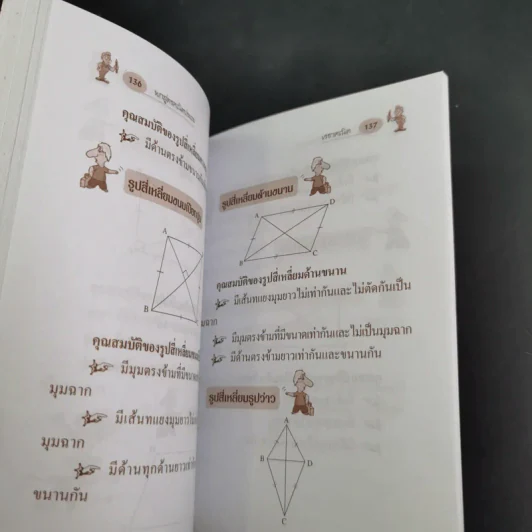 136
คุณสมบัติของรูปสี่เหลี่ยม
มีด้านตรงข้ามขนาน
รูปสี่เหลี่ยมขนมเปียกปูน
A
B
คุณสมบัติของรูปสี่เหลี่ยม
มีมุมตรงข้ามที่มีขนาด
มุมฉาก
มีเส้นทแยงมุมยาว
มุมฉาก
มีด้านทุกด้านยาวเท่า
ขนานกัน
เรขาคณิต 137
รูปสี่เหลี่ยมด้านขนาน
A
D
B
C
คุณสมบัติของรูปสี่เหลี่ยมด้านขนาน
มีเส้นทแยงมุมยาวไม่เท่ากันและไม่ตัดกันเป็น
มุมฉาก
มีมุมตรงข้ามที่มีขนาดเท่ากันและไม่เป็นมุมฉาก
มีด้านตรงข้ามยาวเท่ากันและขนานกัน
รูปสี่เหลี่ยมรูปว่าว
A
B
D
C